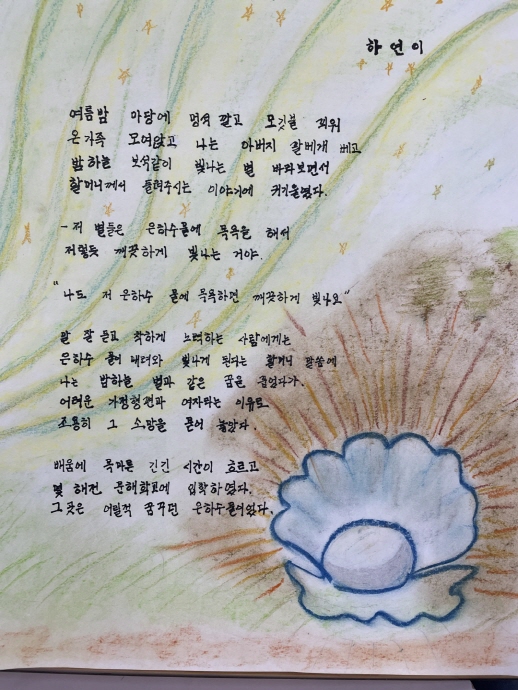 하연이
여름밤 마당에 멍석 깔고 모깃불 피워
온가족 모여앉고 나는 아버지 팔베개 베고
밤하늘 보석같이 빛나는 별 바라보면서
할머니께서 들려주시는 이야기에 귀기울였다.
- 저 별들은 은하수물에 목욕을 해서
저렇듯 깨끗하게 빛나는 거야.
"나도 저 은하수 물에 목욕하면 깨끗하게 빛나요"
말 잘 듣고 착하게 노력하는 사람에게는
은하수 물이 내려와 빛나게 된다는 할머니 말씀에
나는 밤하늘 별과 같은 꿈을 품었다가.
어려운 가정형편과 여자라는 이유로
조용히 그 소망을 묻어 놓았다.
배움에 목마른 긴긴 시간이 흐르고
몇 해전 문해학교에 입학하였다.
그곳은 어릴적 꿈꾸던 은하수물이었다.